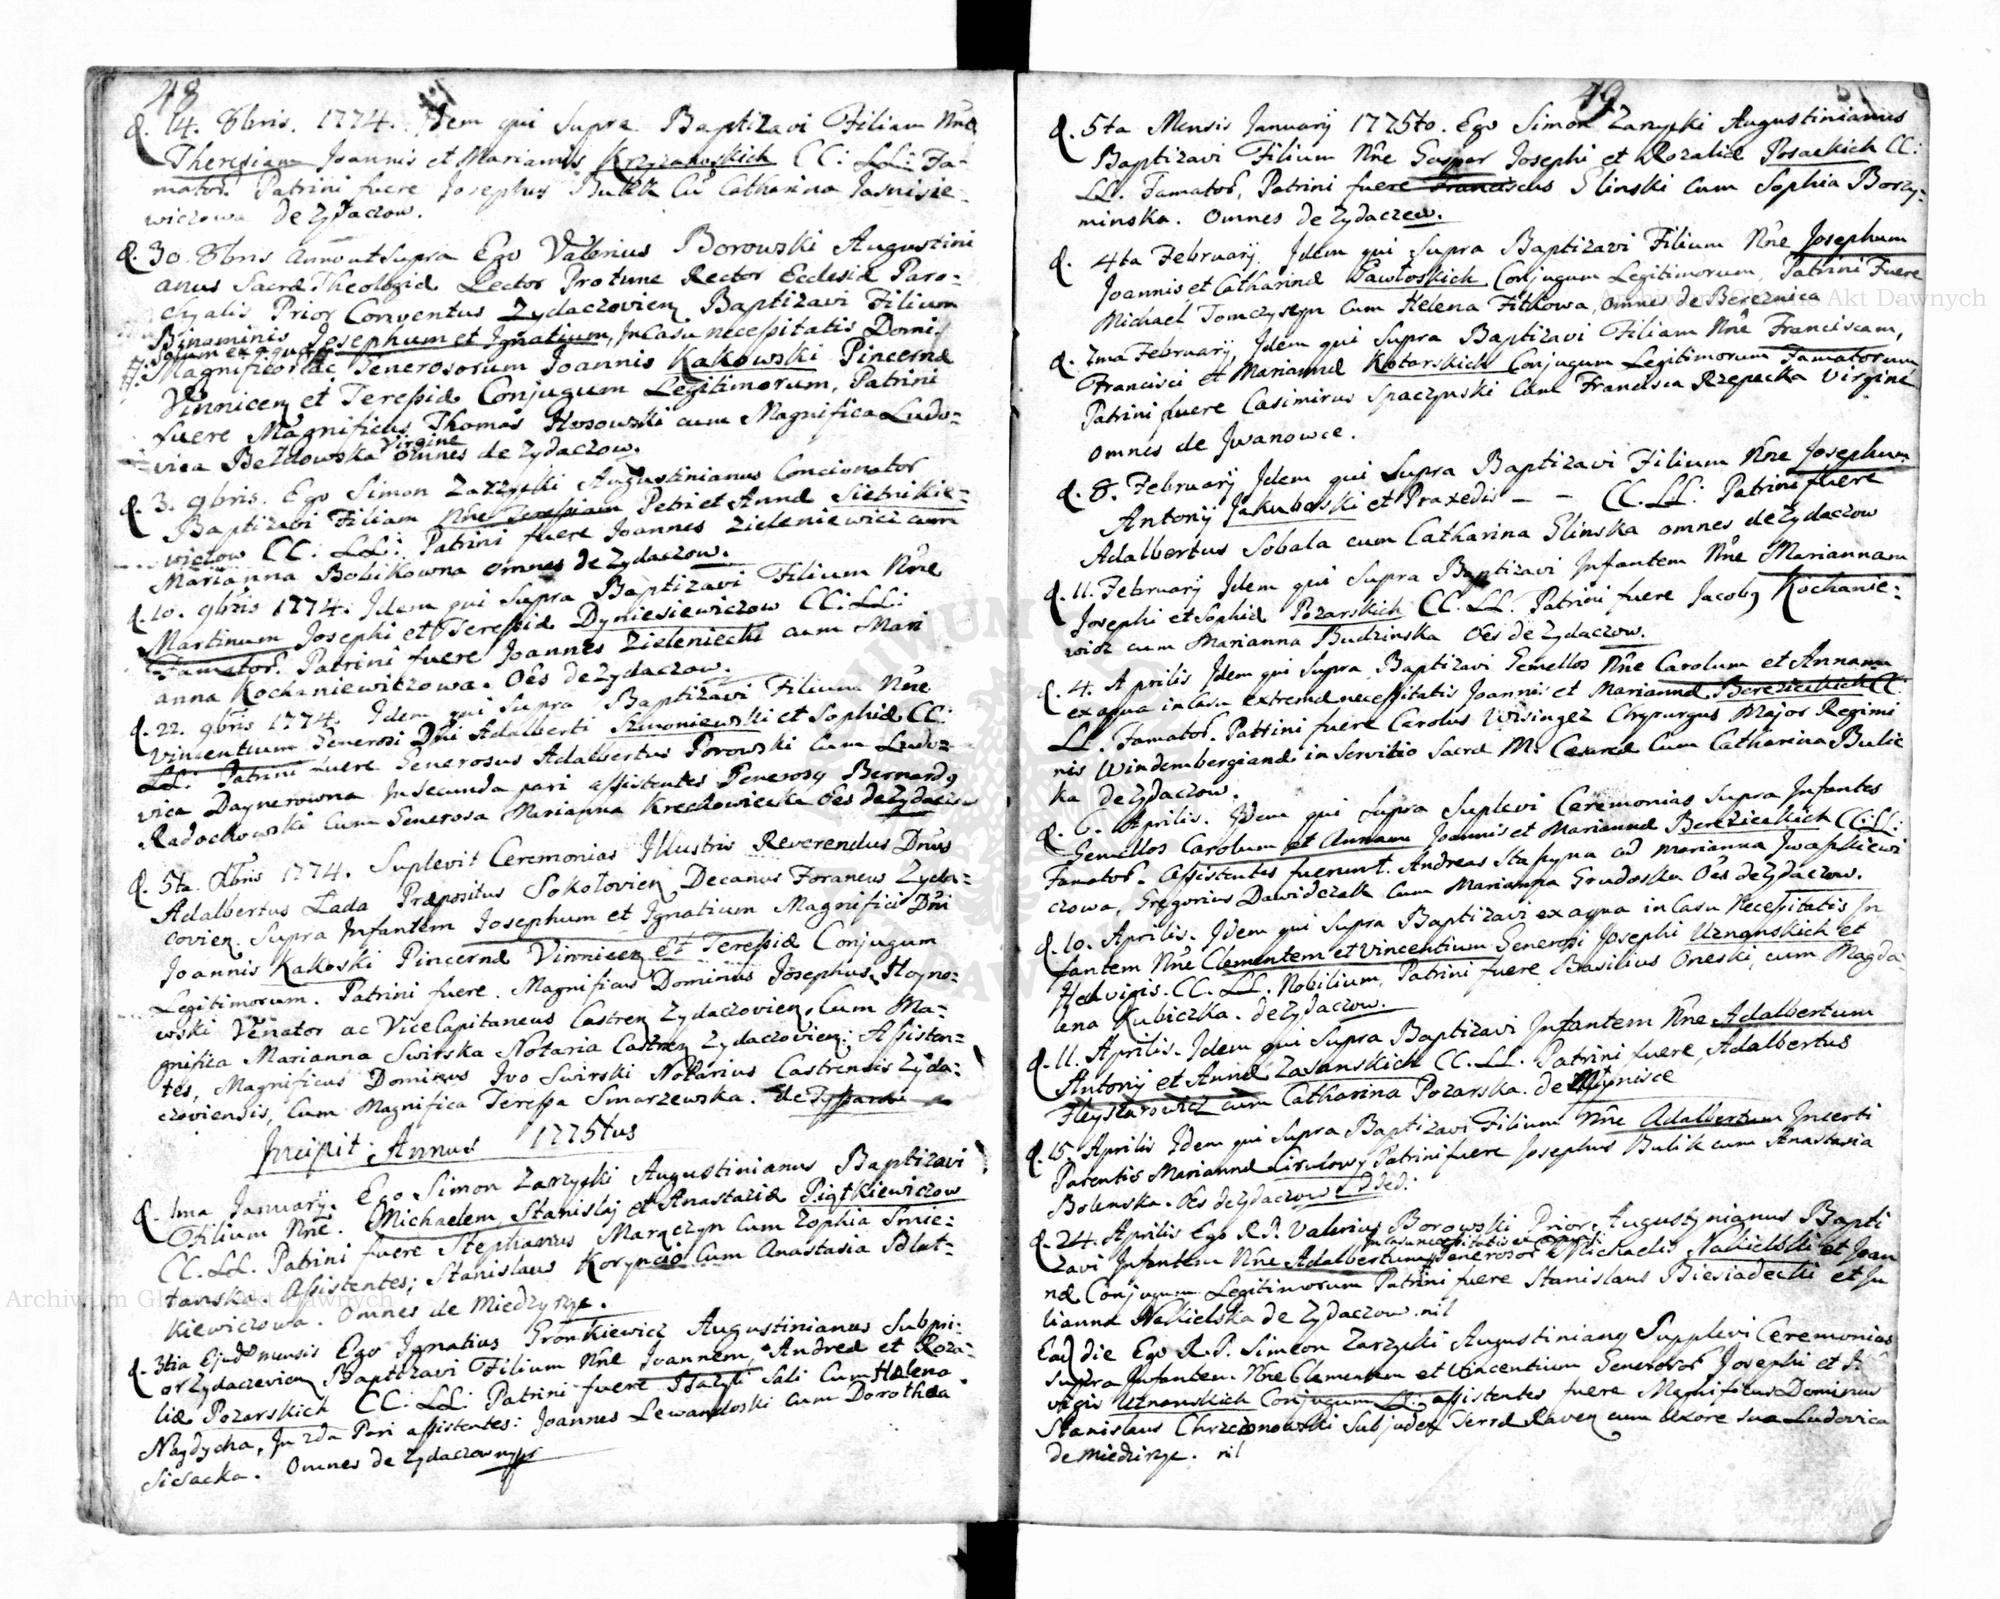 48
d. 14. 8bris. 1774. Idem qui Supra Baptizavi Filiam Nne
Theresiam Joannis et Mariannis Krzyzanoskich CC: LL: Fa-
mator. Patrini fuere Josephus Bulik Cu Catharina Jasnisie-
wiczowa de Zydaczow.
d. 30. 8bris Anno ut Supra Ego Valerius Borowski Augustini
anus Sacræ Theologiæ Lector Protunc Rector Ecclesiæ Paro-
chyalis Prior Conventus Zydaczovien Baptizavi Filium
Binominis Josephum et Ignatium, In Casu necessitatis Domi
solum ex aqua
# Magnificor ac Generosorum Joannis Kakowski Pincernæ
Vinnicen et Teressiæ Conjugum Legitimorum, Patrini
fuere Magnificus Thomas Hosowski cum Magnifica Ludo-
vica Beldowska Virgine omnes de Zydaczow.
d. 3. 9bris. Ego Simon Zarzycki Augustinianus Concionator
Baptizavi Filiam Nne Teressiam Petri et Annæ Sietnikie-
wiczow CC: LL: Patrini fuere Joannes Zieleniewicz cum
Marianna Bobikowna omnes de Zydaczow.
d. 10. 9bris 1774. Idem qui Supra Baptizavi Filium Nne
Martinum Josephi et Teressiæ Dyniesiewiczow CC: LL:
Famator. Patrini fuere Joannes Zieleniecki cum Mari
anna Kochaniewiczowa. Oes de Zydaczow.
d. 22. 9bris 1774. Idem qui Supra Baptizavi Filium Nne
Vincentium Generosi Dni Adalberti Szmoniewski et Sophiæ CC:
LL: Patrini fuere Generosus Adalbertus Porowski Cum Ludo-
vica Daynerowna In secunda pari assistentes Generosy Bernardy
Radochowski Cum Generosa Marianna Krechowiecka Oes de Zydaczow
d. 5ta. Xbris 1774. Suplevit Ceremonias Illustris Reverendus Dnus
Adalbertus Lada Præpositus Sokołovien Decanus Foraneus Zyda-
czovien. Supra Infantem Josephum et Ignatium Magnifici Dni
Joannis Kakoski Pincernæ Vinnicen et Teressiæ Conjugum
Legitimorum. Patrini fuere. Magnificus Dominus Josephus Hoyno-
wski Venator ac Vice Capitaneus Castren Zydaczovien, Cum Ma-
gnifica Marianna Swirska Notaria Castren Zydaczovien: Assisten-
tes, Magnificus Dominus Ivo Swirski Notarius Castrensis Zyda-
czoviensis, Cum Magnifica Teressa Smarzewska.
Incipit Annus 1775tus
d. 1ma January. Ego Simon Zarzycki Augustinianus Baptizavi
Filium Nne. Michaelem, Stanislaj et Anastaziæ Piątkiewiczow
CC. LL. Patrini fuere Stephanus Marączyn Cum Zophia Smie-
tanska. Assistentes; Stanislaus Koryncio Cum Anastasia Solat-
kiewiczowa. Omnes de Miedzyrze.
d. 3tia Ejusd mensis Ego Ignatius Gronkiewicz Augustinianus Subpri-
or Zydaczovien Baptizavi Filium Nne Joannem, Andreæ et Roza-
liæ Pozarskich CC: LL: Patrini fuere Bazyli Sali Cum Helena
Nagdycha, In 2da Pari assistentes: Joannes Lewandoski cum Dorothea
Siesacka. Omnes de Zydaczow
49
d. 5ta Mensis January 1775to. Ego Simon Zarzycki Augustinianus
Baptizavi Filium Nne Gasper Josephi et Rozaliæ Posackich CC:
LL. Famator, Patrini fuere Franciscus Glinski Cum Sophia Borzy-
minska. Omnes de Zydaczow.
d. 4ta February. Idem qui Supra Baptizavi Filium Nne Josephum
Joannis et Catharinæ Pawłoskich Conjugum Legitimorum, Patrini Fuere
Michael Tomczyszyn Cum Helena Fitkowa, Omnes de Bereznica
d. 7ma February, Idem qui Supra Baptizavi Filiam Nne Franciscam,
Francisci et Mariannæ Kotarskich Conjugum Legitimorum Famatorum
Patrini fuere Casimirus Spaczynski Cum Francisca Rzepecka Virgine
omnes de Iwanowce.
d. 8. February Idem qui Supra Baptizavi Filium Nne Josephum
Antonij Jakuboski et Praxedis – – CC. LL: Patrini fuere
Adalbertus Sobala cum Catharina Glinska omnes de Zydaczow
d. 11. February Idem qui Supra Baptizavi Infantem Nne Mariannam
Josephi et Sophiæ Pozarskich CC. LL. Patrini fuere Jacoby Kochanie-
wicz cum Marianna Budzinska Oes de Zydaczow.
d. 4. Aprilis Idem qui Supra Baptizavi Gemellos Nne Carolum et Annam
ex aqua in Casu extremæ necessitatis Joannis et Mariannæ Berezieckich CC:
LL. Famator. Patrini fuere Carolus Wisinger Chyrurgus Major Regimi
nis Windembergianæ in Servitio Sacræ M. Cesareæ Cum Catharina Bulic
ka de Zydaczow.
d. 6. Aprilis. Idem qui Supra Suplevi Ceremonias Supra Infantes
Gemellos Carolum et Annam Joannis et Mariannæ Berezieckich CC: LL:
Famator. Assistentes fuerunt. Andreas Stapyna cu Marianna Iwaszkiewi
czowa, Gregorius Dawidczak Cum Marianna Grudoska Oes de Zydaczow.
d. 10. Aprilis. Idem qui Supra Baptizavi ex aqua in Casu Necessitatis In
fantem Nne Clementem et Vincentium Generosi Josephi Uznanskich et
Hedvigis. CC. LL. Nobilium, Patrini fuere Basilius Oneski, cum Magda-
lena Kubiczka. de Zydaczow.
d. 11. Aprilis. Idem qui Supra Baptizavi Infantem Nne Adalbertum
Antonij et Annæ Zasanskich CC. LL. Patrini fuere, Adalbertus
Fleyszarowicz cum Catharina Pozarska. de Młynisce
d. 15. Aprilis Idem qui Supra Baptizavi Filium Nne Adalbertum Incerti
Parentis Mariannæ Patrini fuere Josephus Bulik cum Anastasia
Bolenska. Oes de Zydaczow
d. 24. Aprilis Ego R. P. Valerius Borowski Prior Augustynianus Bapti
In casu necessitatis ex aqua
zavi Infantem Nne Adalbertum Generosor Michaelis Nakielski et Joan
næ Conjugum Legitimorum Patrini fuere Stanislaus Biesiadecki et Ju
lianna Nakielska de Zydaczow. nil
Ead die Ego R. P. Simeon Zarzycki Augustiniany Supplevi Ceremonias
supra Infantem. Nne Clementem et Vincentium Generosor Josephi et
vigis Uznanskich Conjugum LL: assistentes fuere Magnificus Dominus
Stanislaus Chrzczonowski Subjudex Terræ Raven cum Uxore sua Ludovica
de Miedzirze. nil
Archiwum Główne Akt Dawnych